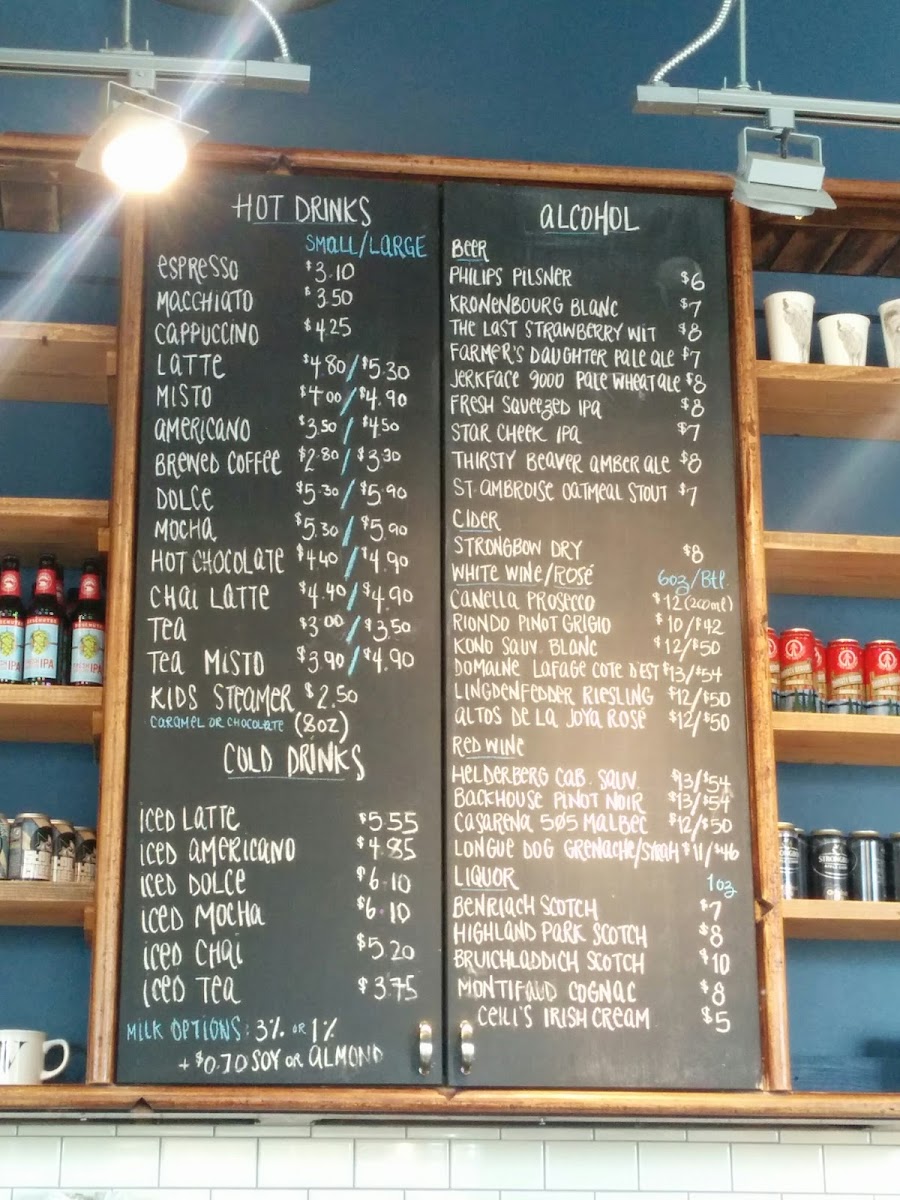 HOT DRINKS
SMALL/LARGE
ESPRESSO $3.10
MACCHIATO $3.50
CAPPUCCINO $4.25
LATTE $4.80/$5.30
MISTO $4.00/$4.90
AMERICANO $3.50/$4.50
BREWED COFFEE $2.80/$3.30
DOLCE $5.30/$5.90
MOCHA $5.30/$5.90
HOT CHOCOLATE $4.40/$4.90
CHAI LATTE $4.40/$4.90
TEA $3.00/$3.50
TEA MISTO $3.90/$4.90
KIDS STEAMER $2.50
CARAMEL OR CHOCOLATE (8oz)
COLD DRINKS
ICED LATTE $5.55
ICED AMERICANO $4.85
ICED DOLCE $6.10
ICED MOCHA $6.10
ICED CHAI $5.20
ICED TEA $3.75
MILK OPTIONS: 3% OR 1%
+ $0.70 SOY OR ALMOND
ALCOHOL
BEER
PHILIPS PILSNER $6
KRONENBOURG BLANC $7
THE LAST STRAWBERRY WIT $8
FARMER'S DAUGHTER PALE ALE $7
JERKFACE 9000 PALE WHEAT ALE $8
FRESH SQUEEZED IPA $8
STAR CHEEK IPA $7
THIRSTY BEAVER AMBER ALE $8
ST. AMBROISE OATMEAL STOUT $7
CIDER
STRONGBOW DRY $8
WHITE WINE/ROSÉ 6oz/Btl.
CANELLA PROSECCO $12 (200ml)
RIONDO PINOT GRIGIO $10/$42
KONO SAUV. BLANC $12/$50
DOMAINE LAFAGE COTE D'EST $13/$54
LINGDENFEDDER RIESLING $12/$50
ALTOS DE LA JOYA ROSÉ $12/$50
RED WINE
HELDERBERG CAB. SAUV. $13/$54
BACKHOUSE PINOT NOIR $13/$54
CASARENA 505 MALBEC $12/$50
LONGUE DOG GRENACHE/SYRAH $11/$46
LIQUOR 1oz
BENRIACH SCOTCH $7
HIGHLAND PARK SCOTCH $8
BRUICHLADDICH SCOTCH $10
MONTIFAUD COGNAC $8
CEILI'S IRISH CREAM $5
IPA
IPA
IPA
STRONGBOW